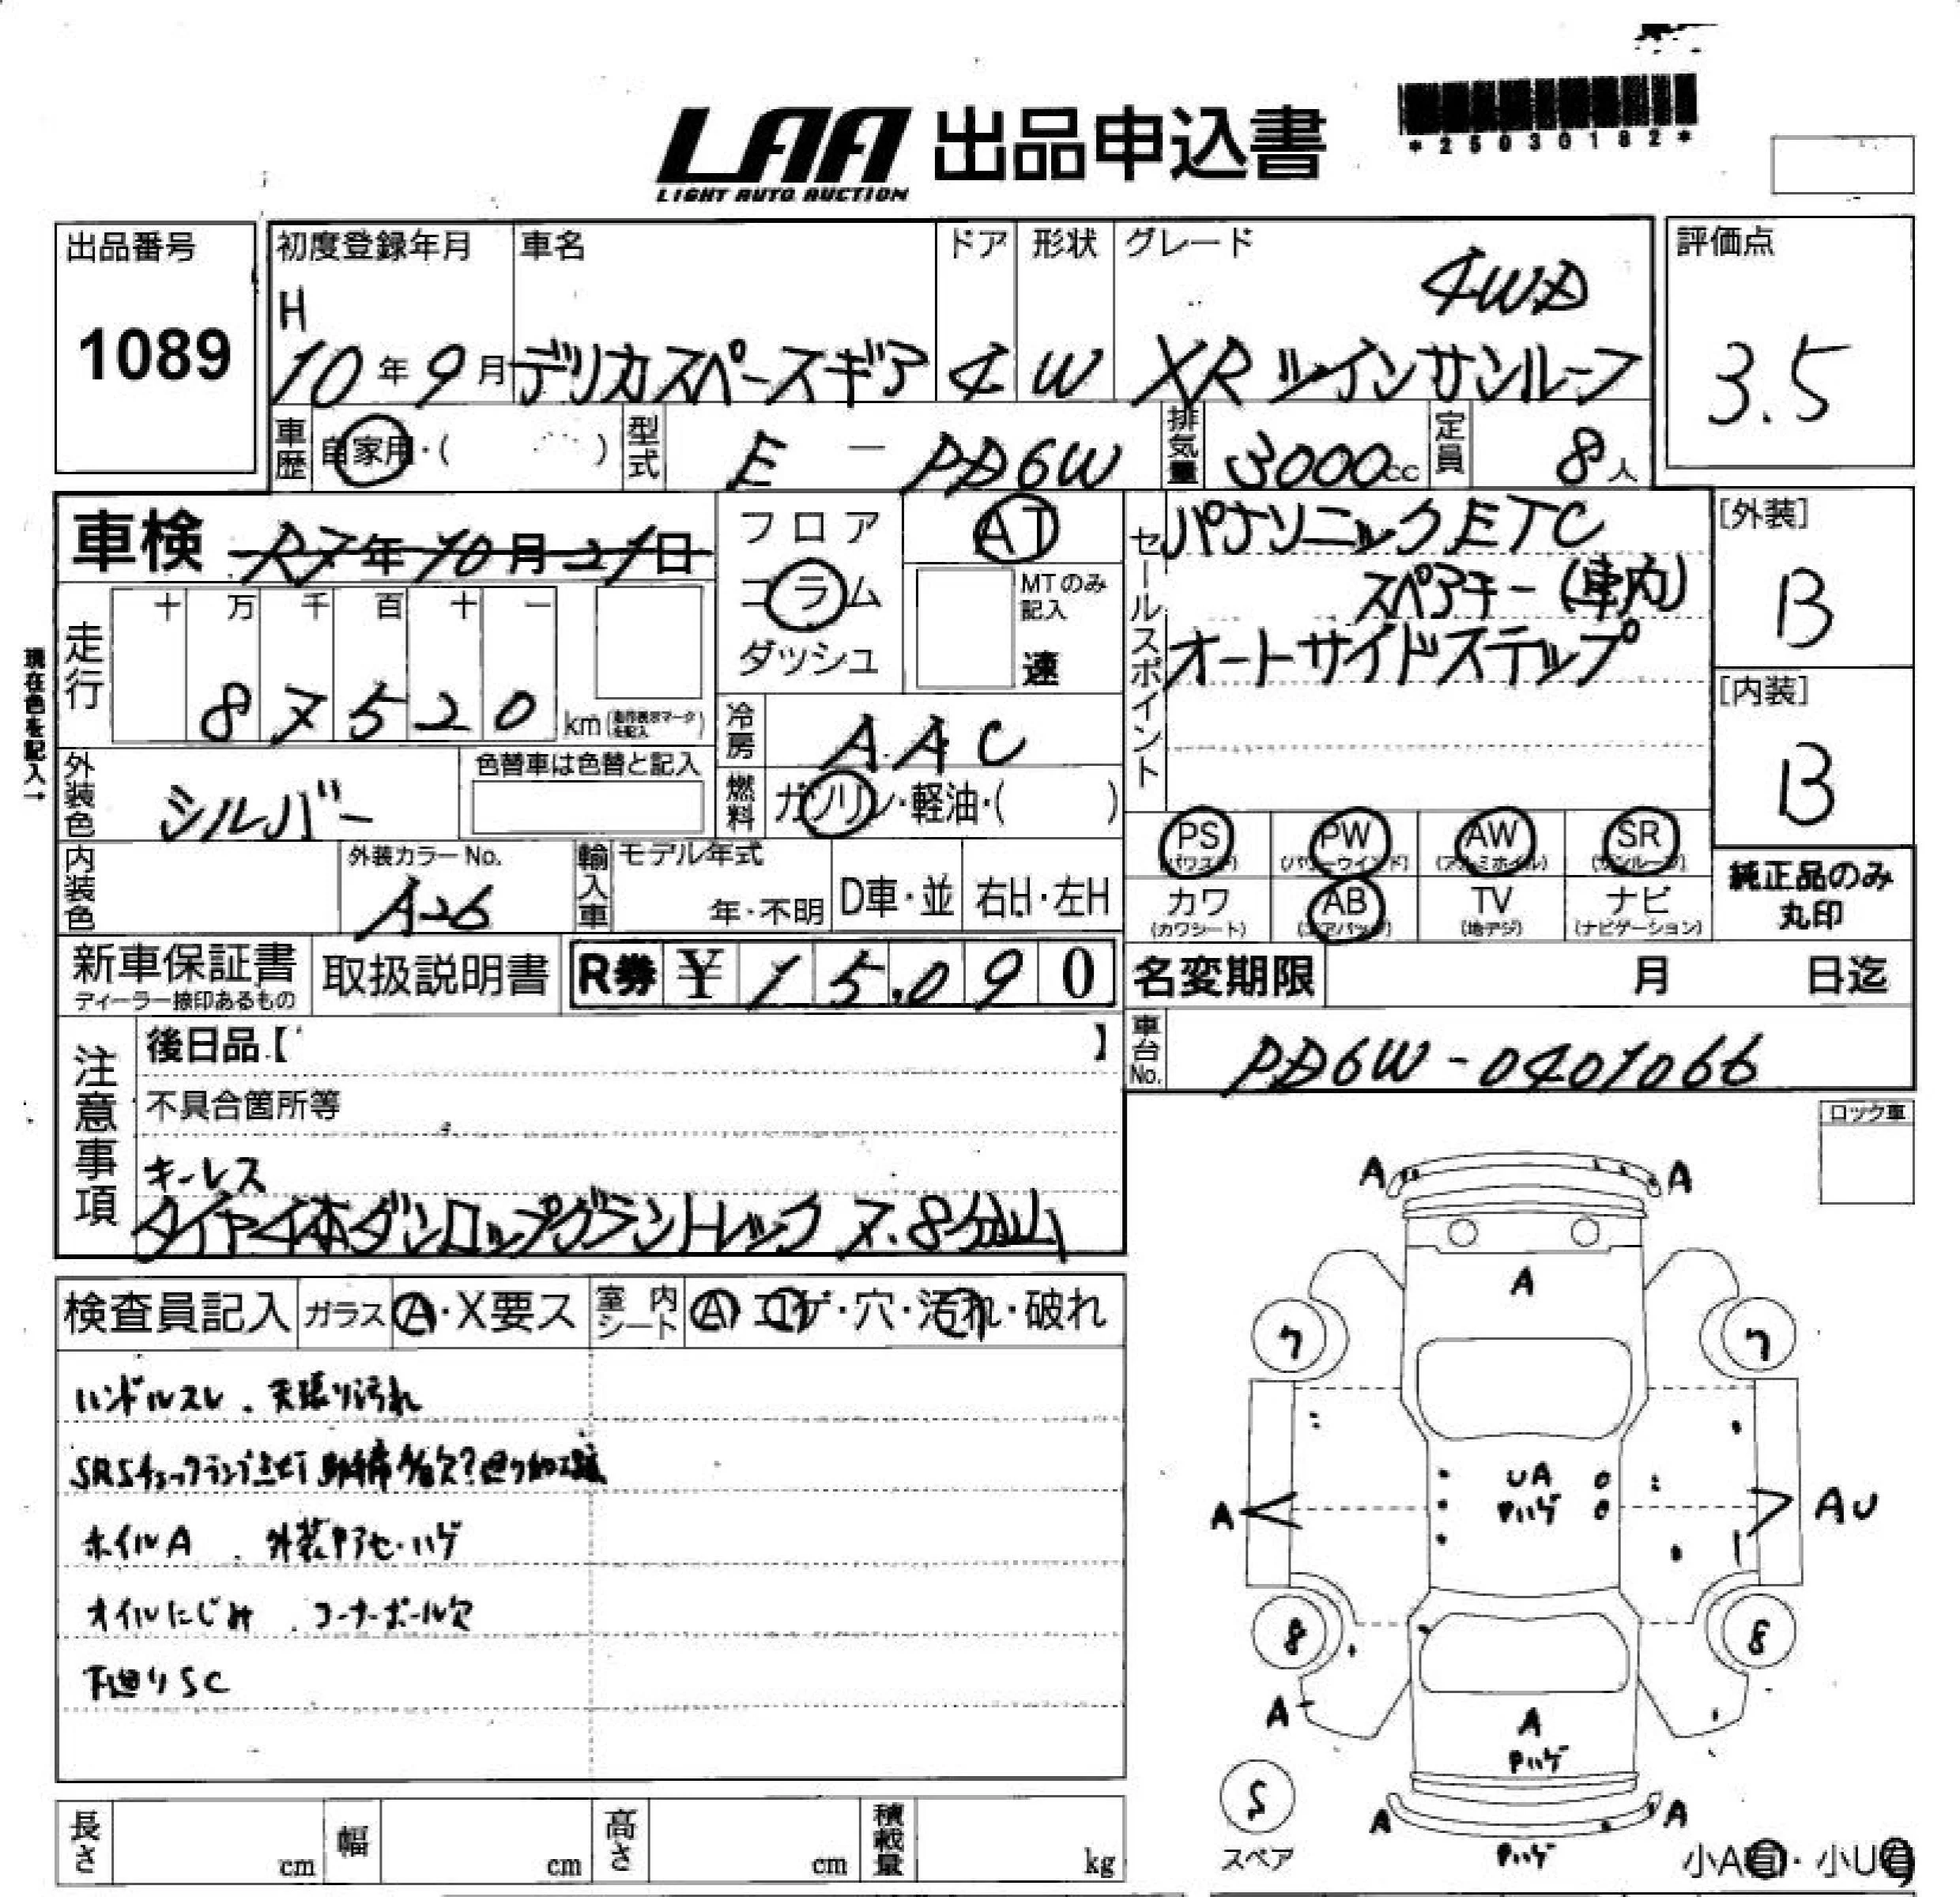 LAA 出品申込書
LIGHT AUTO AUCTION
*25030182*
出品番号
1089
初度登録年月 車名 ドア 形状 グレード
H 4WD
10年9月 デリカスペースギア 4 W XR ツインサンルーフ
評価点
3.5
車歴 自家用・( ) 型式 E-PD6W 排気量 3000cc 定員 8人
車検 R7年10月21日
フロア
コラム
ダッシュ
AT
MTのみ記入
速
セールスポイント
パナソニックETC
スペアキー(車内)
オートサイドステップ
[外装]
B
[内装]
B
現在色を記入→
走行 十 万 千 百 十 一
87520 km
冷房 AAC
外装色 シルバー 色替車は色替と記入
燃料 ガソリン・軽油・( )
内装色 外装カラーNo. A26
輸入車 モデル年式 年・不明 D車・並 右H・左H
PS PW AW SR
(パワステ) (パワーウインド) (アルミホイル) (サンルーフ)
カワ AB TV ナビ
(カワシート) (エアバッグ) (地デジ) (ナビゲーション)
純正品のみ
丸印
新車保証書
ディーラー捺印あるもの
取扱説明書
R券 ¥15,090
名変期限 月 日迄
車台No. PD6W-0401066
注意事項
後日品【 】
不具合箇所等
キーレス
タイヤ4本ダンロップグラントレック 7.8分山
ロック車
検査員記入 ガラス A・X要ス 室内シート A コゲ・穴・汚れ・破れ
ハンドルスレ.天張り汚れ
SRSチェックランプ点灯
ホイルA.外装Pアセ・ハゲ
オイルにじみ.コーナーポール欠
下廻りSC
A A
A
7 7
UA
Pハゲ
A AU
8 8
A
A
Pハゲ
S
スペア
A A
Pハゲ
小A有・小U有
長さ cm 幅 cm 高さ cm 積載量 kg